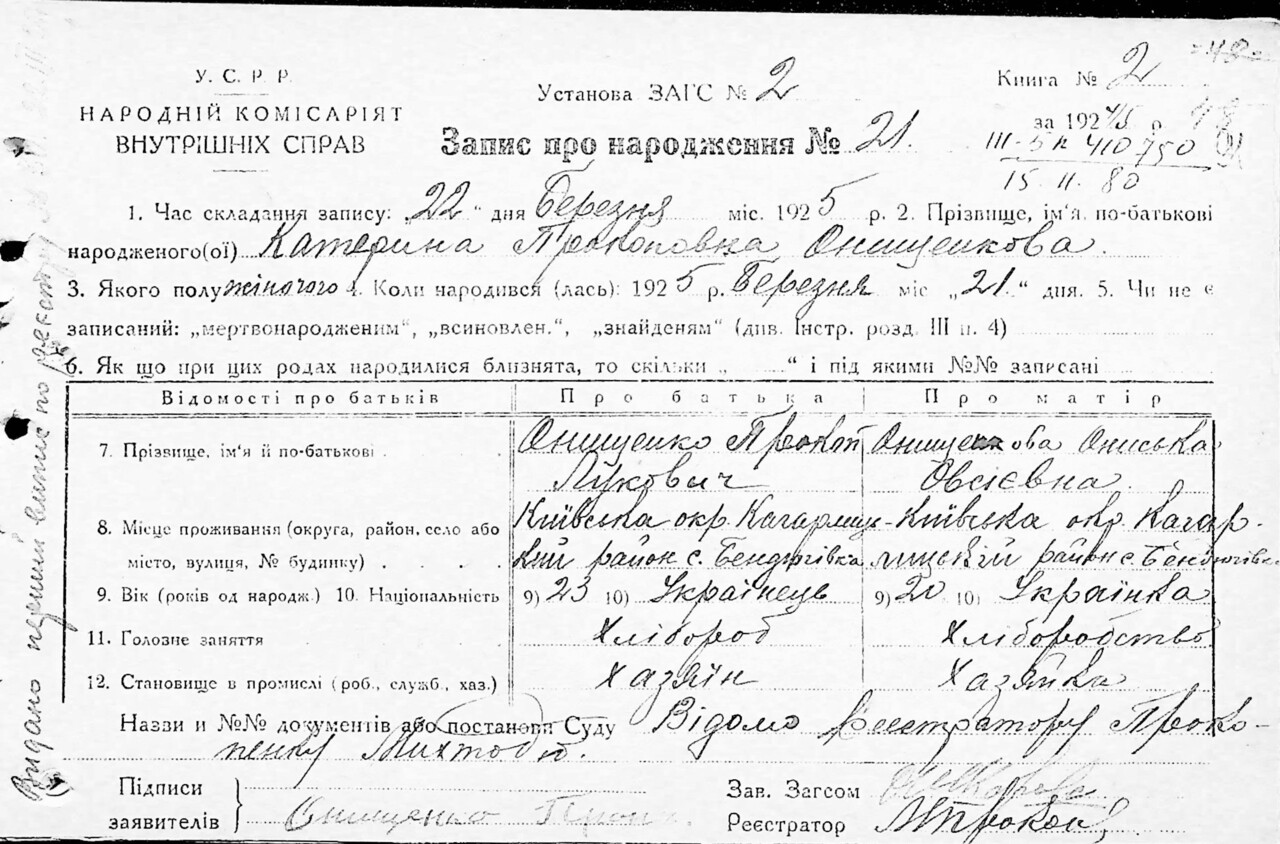 - 48 -
У. С. Р. Р.
НАРОДНІЙ КОМІСАРІЯТ
ВНУТРІШНІХ СПРАВ
Установа ЗАГС № 2
Книга № 2
за 192 4/5 р.
Запис про народження № 21.
410 750
15. II. 80
1. Час складання запису: „22“ дня Березня міс. 1925 р. 2. Прізвище, ім'я, по-батькові
народженого(ої) Катерина Прокоповна Онищенкова.
3. Якого полу жіночого 4. Коли народився (лась): 1925 р. Березня міс „21“ дня. 5. Чи не є
записаний: „мертвонародженим“, „всиновлен.“, „знайденям“ (див. Інстр. розд. III п. 4)
6. Як що при цих родах народилися близнята, то скільки „ “ і під якими №№ записані
Відомості про батьків Про батька Про матір
7. Прізвище, ім'я й по-батькові Онищенко Прокіп Лукович Онищенкова Ониська Овсієвна
8. Місце проживання (округа, район, село або місто, вулиця, № будинку) Київська окр. Кагарлицький район с. Бендюгівка Київська окр. Кагарлицький район с. Бендюгівка
9. Вік (років од народж.) 10. Національність 9) 23 10) Українець 9) 20 10) Українка
11. Головне заняття Хлібороб Хліборобство
12. Становище в промислі (роб., служб., хаз.) Хазяїн Хазяйка
Назви и №№ документів або постанови Суду Відомо реєстратору Проко-
пенку
Підписи
заявителів
Онищенко Прок
Зав. Загсом
Реєстратор МПрокоп
Видано перший витяг по